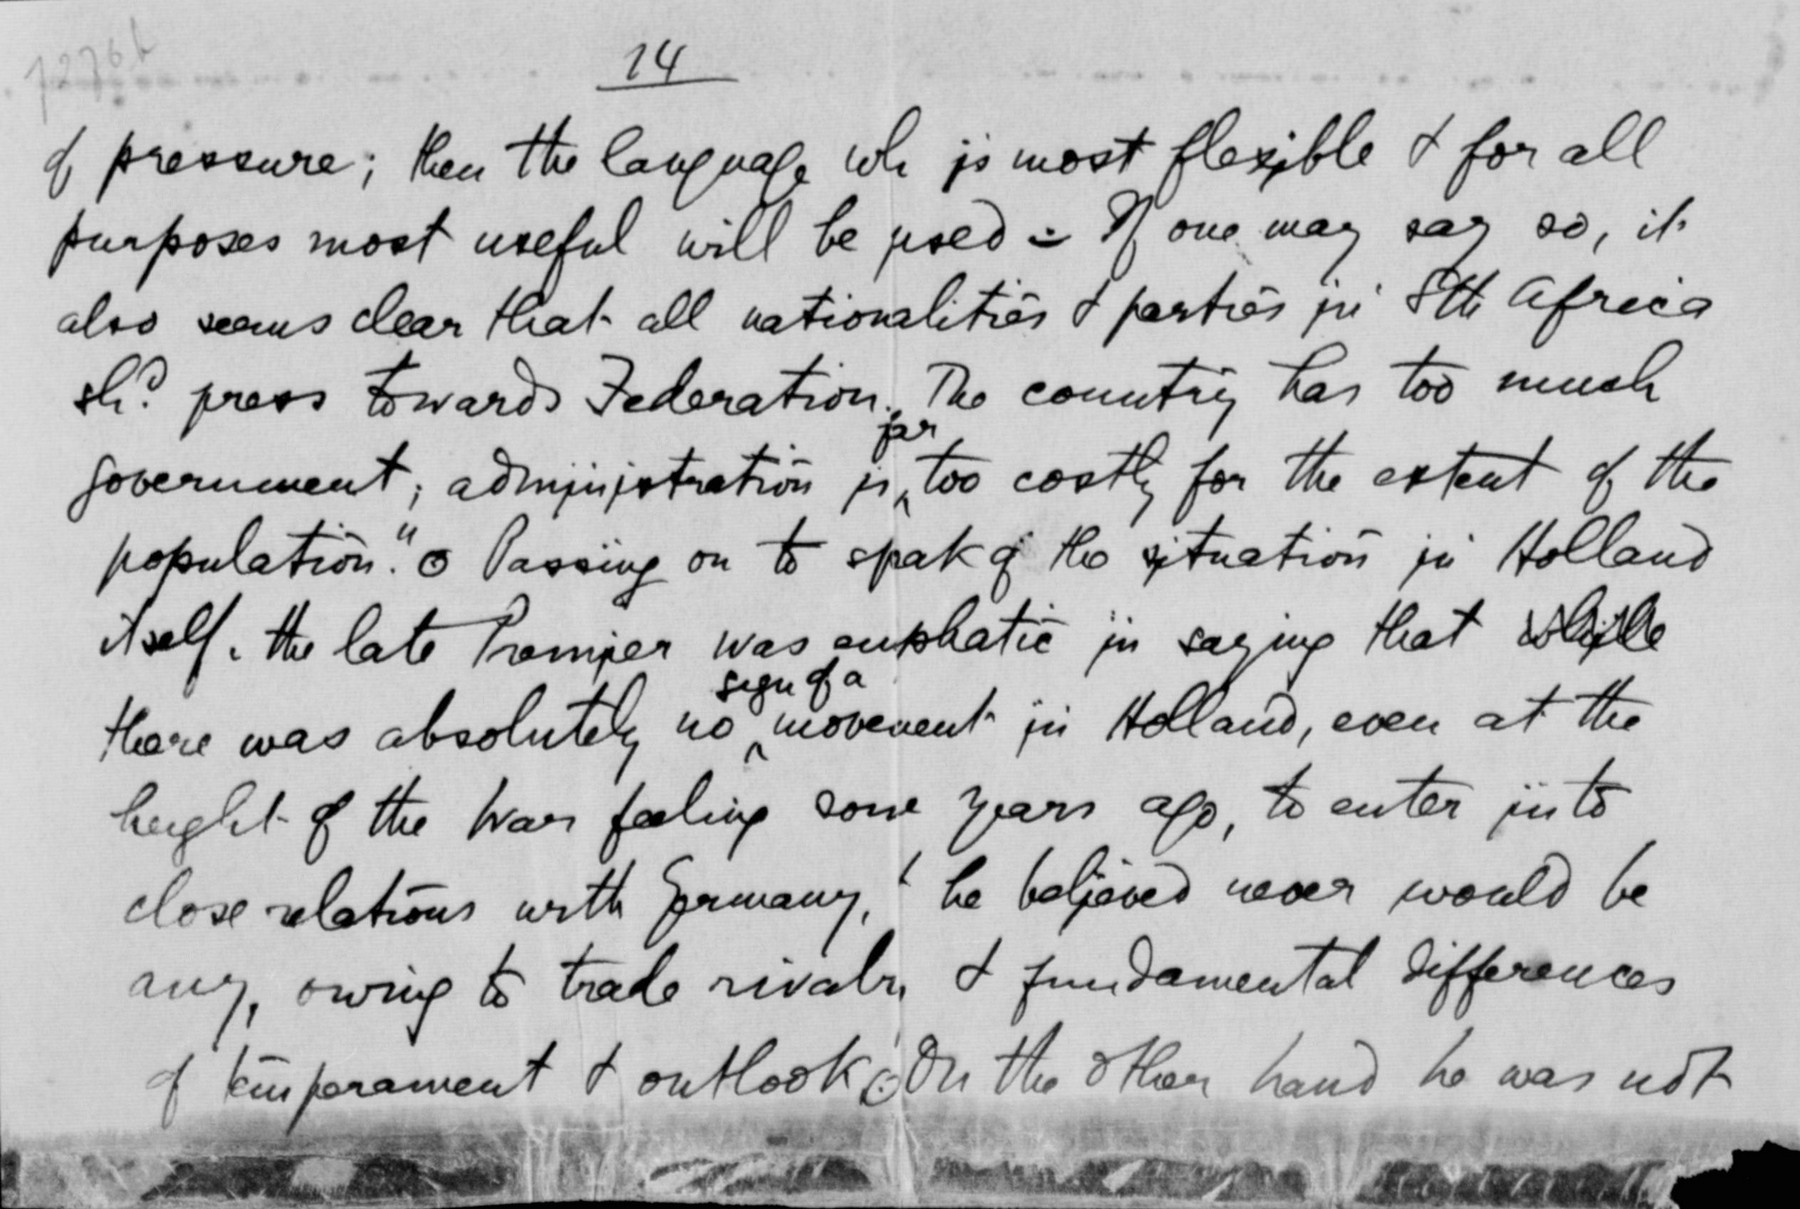 7276b
14
of pressure; then the language wh is most flexible & for all
purposes most useful will be used. If one may say so, it
also seems clear that all nationalities & parties in Sth Africa
shd press towards Federation. The country has too much
far
government; administration is ^ too costly for the extent of the
population." Passing on to speak of the situation in Holland
itself, the late Premier was emphatic in saying that while
sign of a
there was absolutely no ^ movement in Holland, even at the
height of the War feeling some years ago, to enter into
close relations with Germany, he believed never would be
any, owing to trade rivalry & fundamental differences
of temperament & outlook. On the other hand he was not